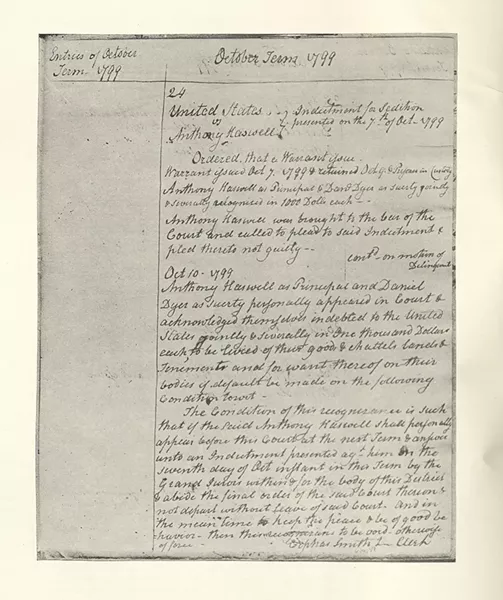 Entries of October
Term 1799
October Term 1799
24
United States
vs
Anthony Haswell
Indictment for Sedition
presented on the 7th of Oct. 1799
Ordered, that a Warrant issue
Warrant issued Oct 7. 1799 & returned Oct 9. & Prisoner in Custody
Anthony Haswell as Principal & Danl Dyer as surety jointly
& severally recognized in 1000 Dolls each --
Anthony Haswell was brought to the bar of the
Court and called to plead to said Indictment &
pled thereto not guilty --
contd on motion of
Delinquent
Oct 10 - 1799
Anthony Haswell as Principal and Daniel
Dyer as suerty personally appeared in Court &
acknowledged themselves indebted to the United
States jointly & severally in One thousand Dollars
each, to be levied of their goods & chattels lands &
Tenements and for want thereof on their
bodies if default be made on the following
Condition towit -
The Condition of this recognizance is such
that if the said Anthony Haswell shall personally
appear before this Court at the next Term & answer
unto an Indictment presented agt him on the
seventh day of Oct instant in this Term by the
Grand Jurors within & for the body of this District
& abide the final order of the said Court thereon &
not depart without leave of said Court - and in
the mean time to keep the peace & be of good be
havior - then this recognizance to be void - otherwise
of force -
Cephas Smith Jr Clerk